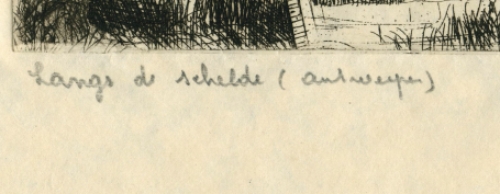 Langs de schelde ( antwerpen)